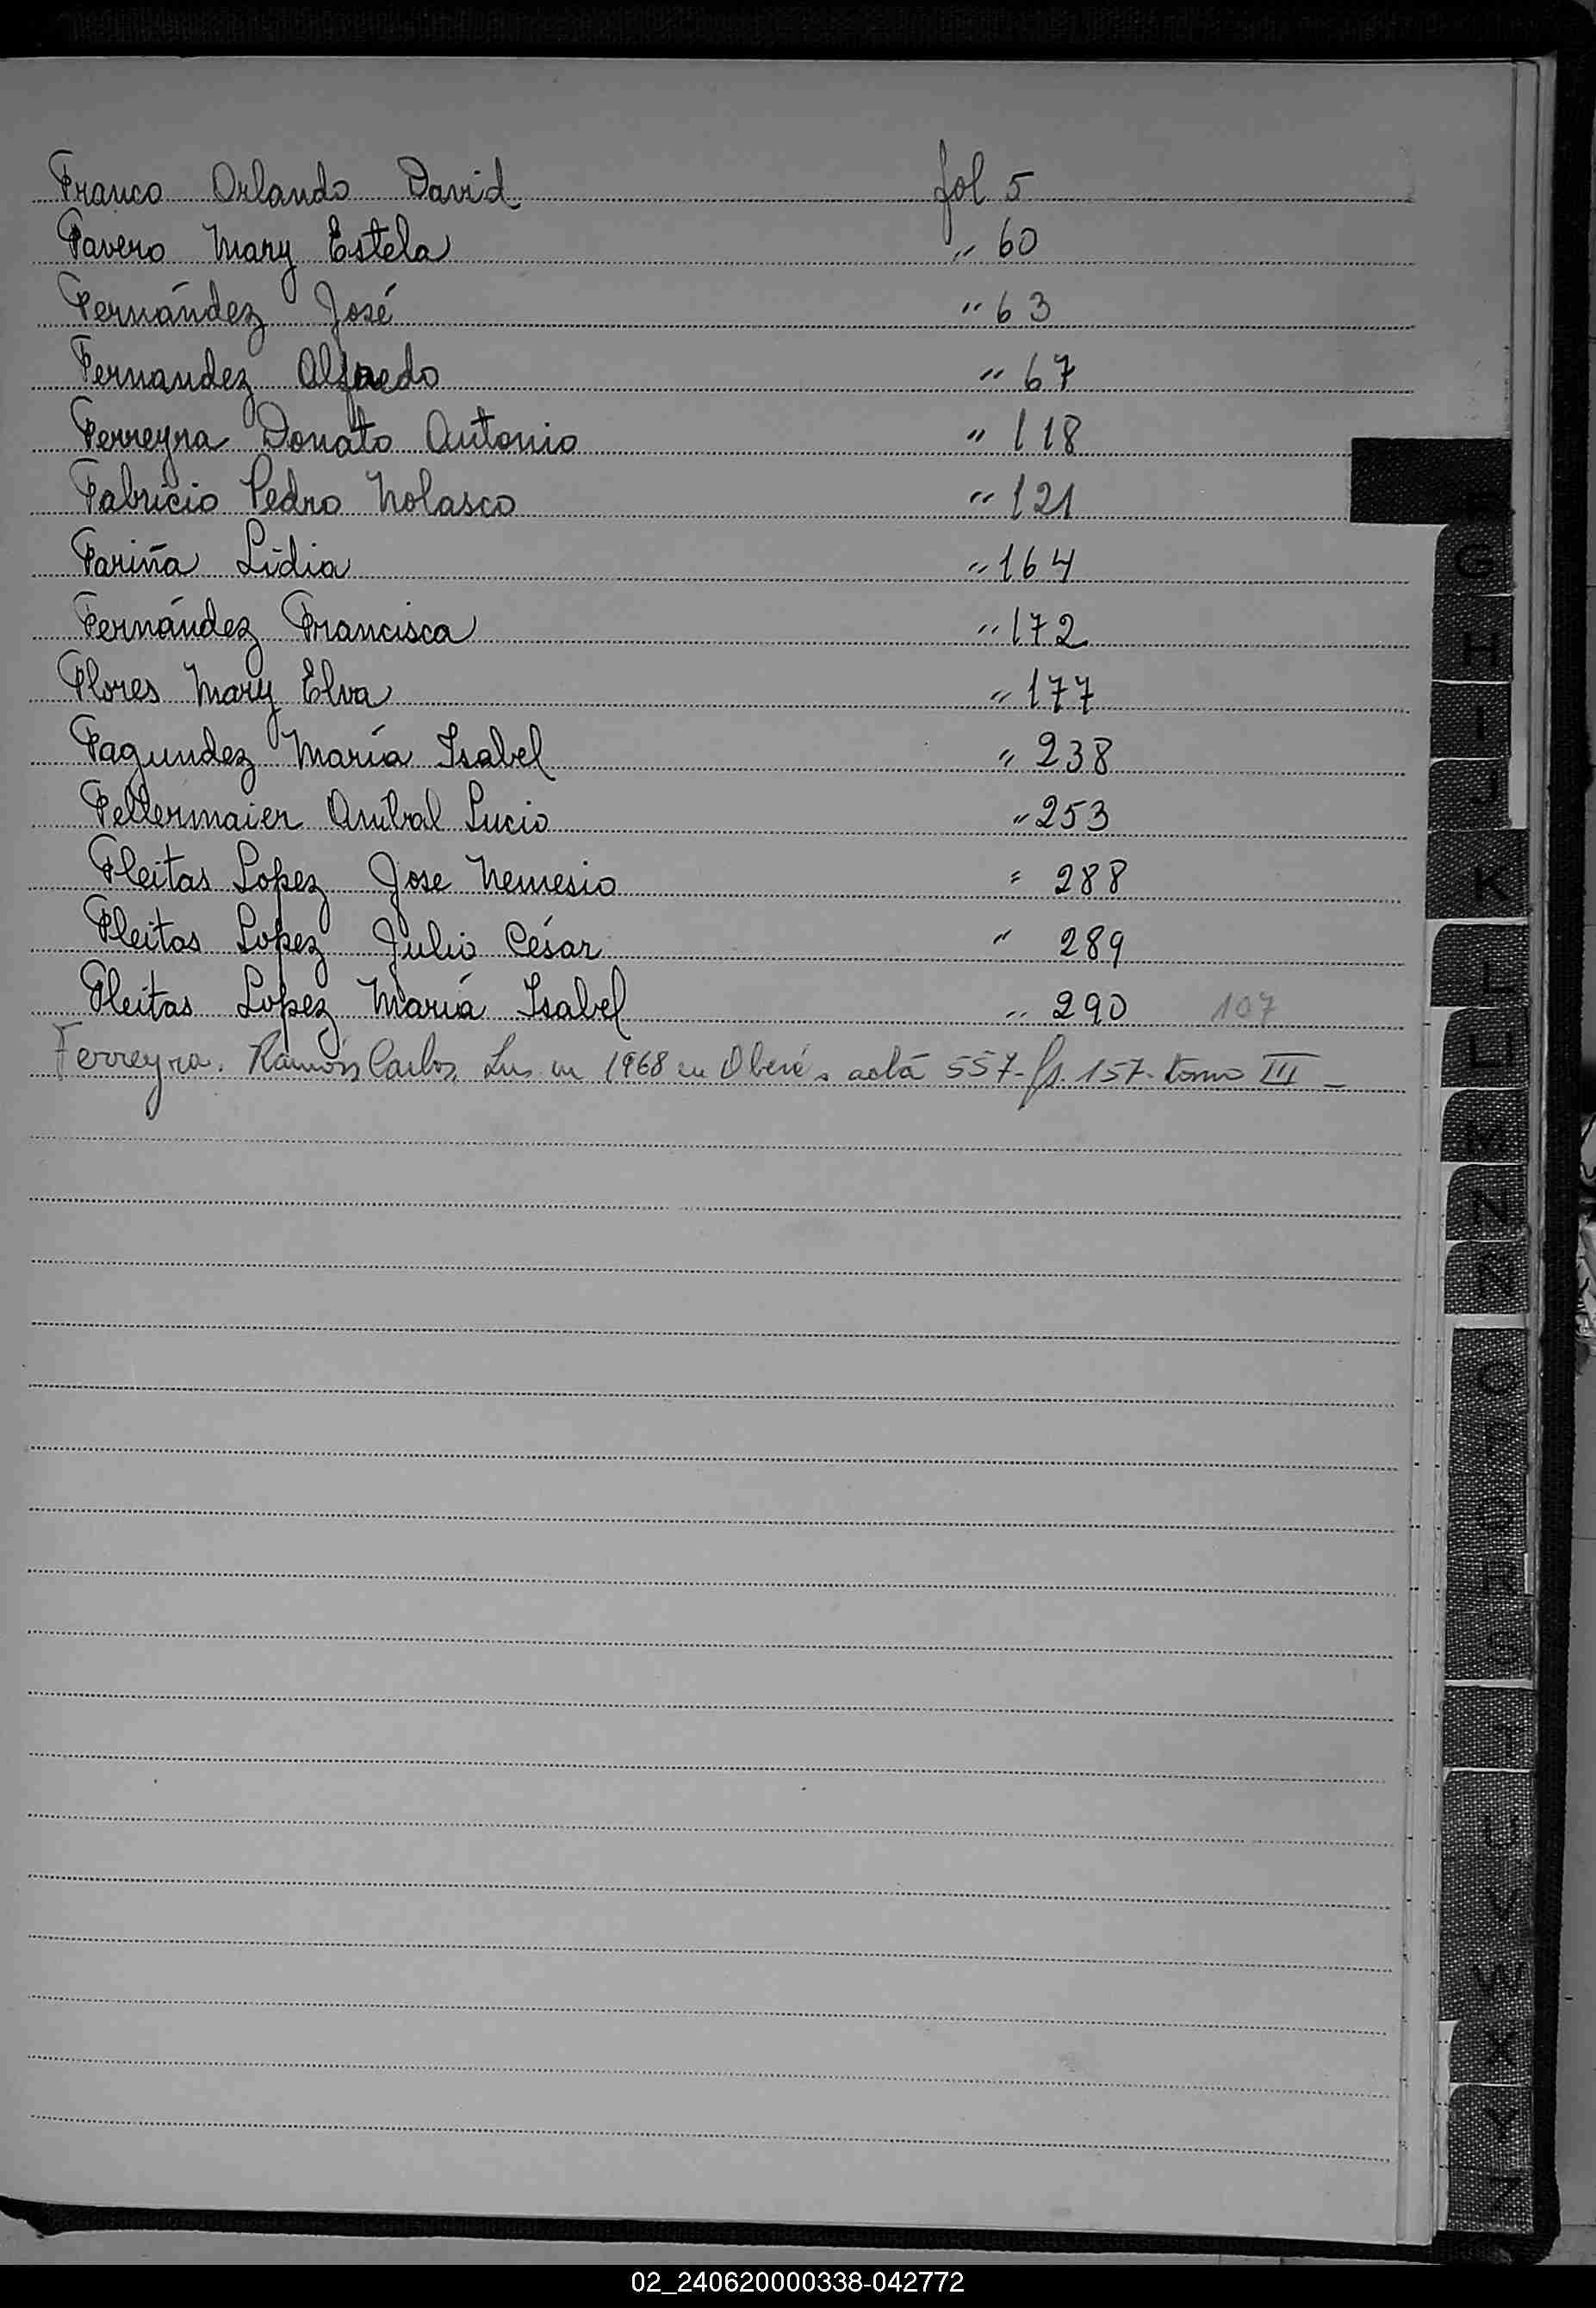 Franco Orlando David fol 5
Favero Mary Estela " 60
Fernández José " 63
Fernandez Alfredo " 67
Ferreyra Donato Antonio " 118
Fabricio Pedro Nolasco " 121
Fariña Lidia " 164
Fernández Francisca " 172
Flores Mary Elva " 177
Fagundez María Isabel " 238
Fellermaier Anibal Lucio " 253
Fleitas Lopez Jose Nemesio " 288
Fleitas Lopez Julio César " 289
Fleitas Lopez María Isabel " 290 107
Ferreyra. Ramón Carlos, en 1968 en Oberá, acta 557- fs. 157- tomo III -
G
H
I
J
K
L
LL
M
N
Ñ
O
P
Q
R
S
T
U
V
W
X
Y
Z
02_240620000338-042772